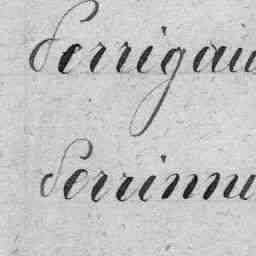 Perrigau
Perrinne